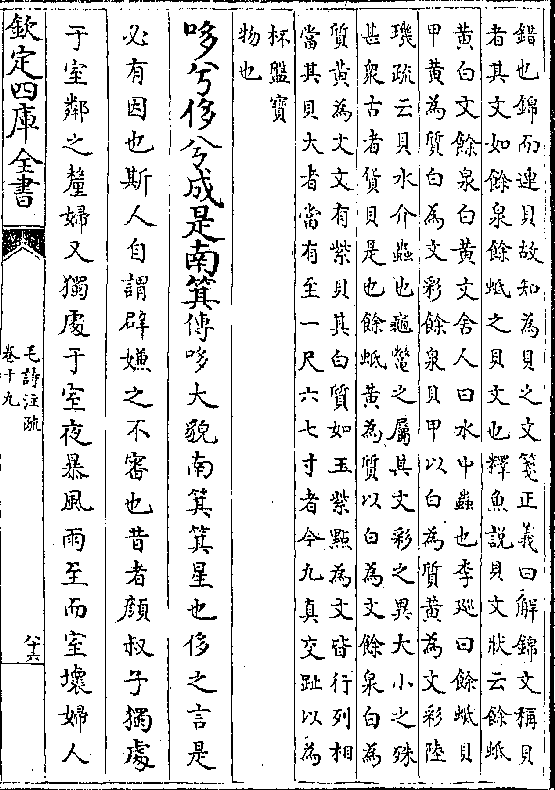 錯也錦而連貝故知為貝之文箋正義曰解錦文稱貝
者其文如餘泉餘蚳之貝文也釋魚說貝文狀云餘蚳
黄白文餘泉白黄文舍人曰水中蟲也李廵曰餘蚳貝
甲黄為質白為文彩餘泉貝甲以白為質黄為文彩陸
璣疏云貝水介蟲也龜鼈之屬其文彩之異大小之殊
甚衆古者貨貝是也餘蚳黄為質以白為文餘泉白為
質黄為文又有紫貝其白質如玉紫點為文皆行列相
當其貝大者當有至一尺六七寸者今九真交趾以為
杯盤寳
物也
哆兮侈兮成是南箕傳哆大貌南箕箕星也侈之言是
必有因也斯人自謂辟嫌之不審也昔者顔叔子獨處
于室鄰之釐婦又獨處于室夜暴風雨至而室壞婦人
欽定四庫全書
毛詩注疏
卷十九
八十六